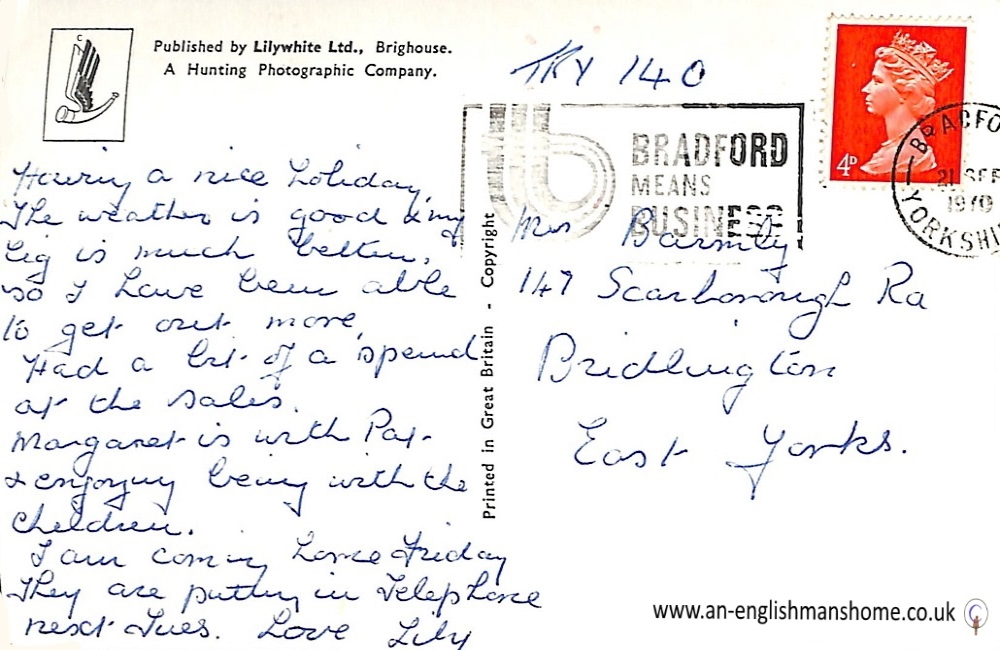 Published by Lilywhite Ltd., Brighouse.
A Hunting Photographic Company.
TRY 140
BRADFORD
MEANS
BUSINESS
4D
BRADFO
21 SEP
1970
YORKSHI
Having a nice holiday,
The weather is good & my
leg is much better,
so I have been able
to get out more,
Had a bit of a spend
at the sales.
Margaret is with Pat
& enjoying being with the
children.
I am coming home Friday
They are putting in Telephone
next Tues. Love Lily
Printed in Great Britain - Copyright
Mrs Barmby
147 Scarborough Rd
Bridlington
East Yorks.
www.an-englishmanshome.co.uk